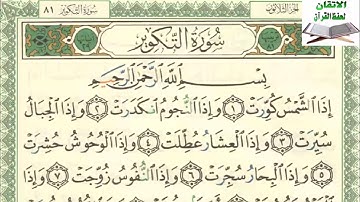 سورة التكوير ٨١ الجزء الثلاثون
الاتقان
لحفظ القرآن
سُورَةُ التَّكْوِيرِ
بِسْمِ اللَّهِ الرَّحْمَٰنِ الرَّحِيمِ
إِذَا الشَّمْسُ كُوِّرَتْ ١ وَإِذَا النُّجُومُ انكَدَرَتْ ٢ وَإِذَا الْجِبَالُ
سُيِّرَتْ ٣ وَإِذَا الْعِشَارُ عُطِّلَتْ ٤ وَإِذَا الْوُحُوشُ حُشِرَتْ
٥ وَإِذَا الْبِحَارُ سُجِّرَتْ ٦ وَإِذَا النُّفُوسُ زُوِّجَتْ ٧ وَإِذَا